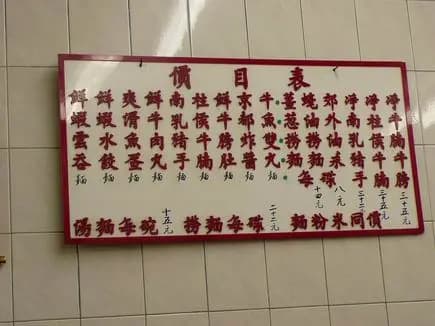 價目表
鮮蝦雲吞麵
鮮蝦水餃麵
爽滑魚蛋麵
鮮牛肉火麵
南乳豬手麵
柱侯牛腩麵
鮮牛膀肚麵
京都炸醬麵
牛魚雙火麵
薑葱撈麵
蠔油撈麵
每碟
十四元
郊外油菜
八元
淨南乳豬手
三十二元
淨柱侯牛腩
三十五元
淨牛腩牛膀
三十五元
湯麵每碗 十五元 撈麵每碟 二十二元 麵粉米同價